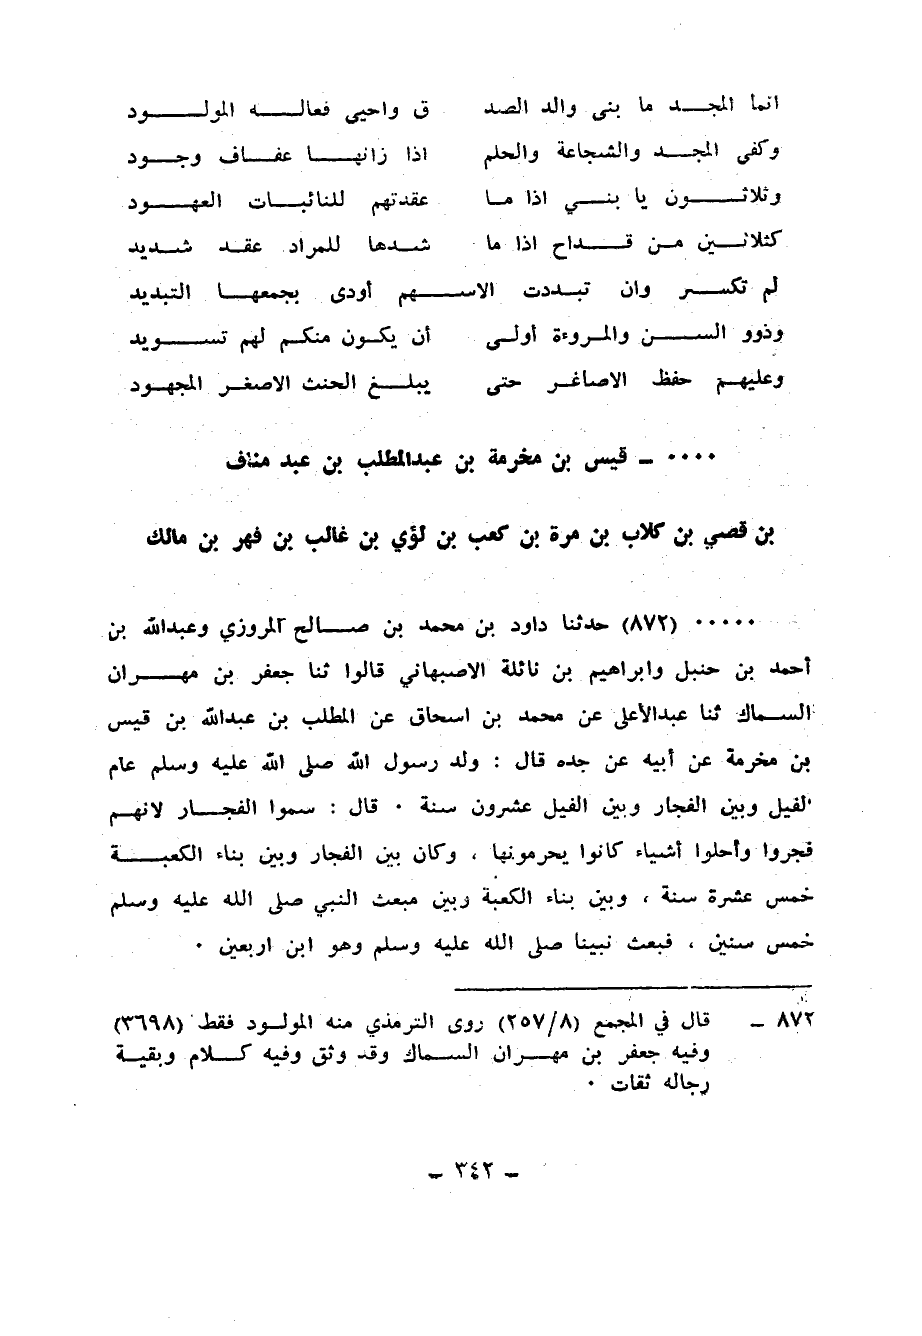 انما المجد ما بنى والد الصد ق واحيى فعاله المولود
وكفى المجد والشجاعة والحلم اذا زانها عفاف وجود
وثلاثون يا بني اذا ما عقدتهم للنائبات العهود
كثلاثين من قداح اذا ما شدها للمراد عقد شديد
لم تكسر وان تبددت الاسهم أودى بجمعها التبديد
وذوو السن والمروءة أولى أن يكون منكم لهم تسويد
وعليهم حفظ الاصاغر حتى يبلغ الحنث الاصغر المجهود
٠٠٠٠ ـ قيس بن مخرمة بن عبدالمطلب بن عبد مناف
بن قصي بن كلاب بن مرة بن كعب بن لؤي بن غالب بن فهر بن مالك
٠٠٠٠٠ (٨٧٢) حدثنا داود بن محمد بن صالح المروزي وعبدالله بن
أحمد بن حنبل وابراهيم بن نائلة الاصبهاني قالوا ثنا جعفر بن مهران
السماك ثنا عبدالأعلى عن محمد بن اسحاق عن المطلب بن عبدالله بن قيس
بن مخرمة عن أبيه عن جده قال : ولد رسول الله صلى الله عليه وسلم عام
الفيل وبين الفجار وبين الفيل عشرون سنة ٠ قال : سموا الفجار لانهم
فجروا وأحلوا أشياء كانوا يحرمونها ، وكان بين الفجار وبين بناء الكعبة
خمس عشرة سنة ، وبين بناء الكعبة وبين مبعث النبي صلى الله عليه وسلم
خمس سنين ، فبعث نبينا صلى الله عليه وسلم وهو ابن اربعين ٠
٨٧٢ ـ قال في المجمع (٢٥٧/٨) روى الترمذي منه المولود فقط (٣٦٩٨)
وفيه جعفر بن مهران السماك وقد وثق وفيه كلام وبقية
رجاله ثقات ٠
ـ ٣٤٢ ـ